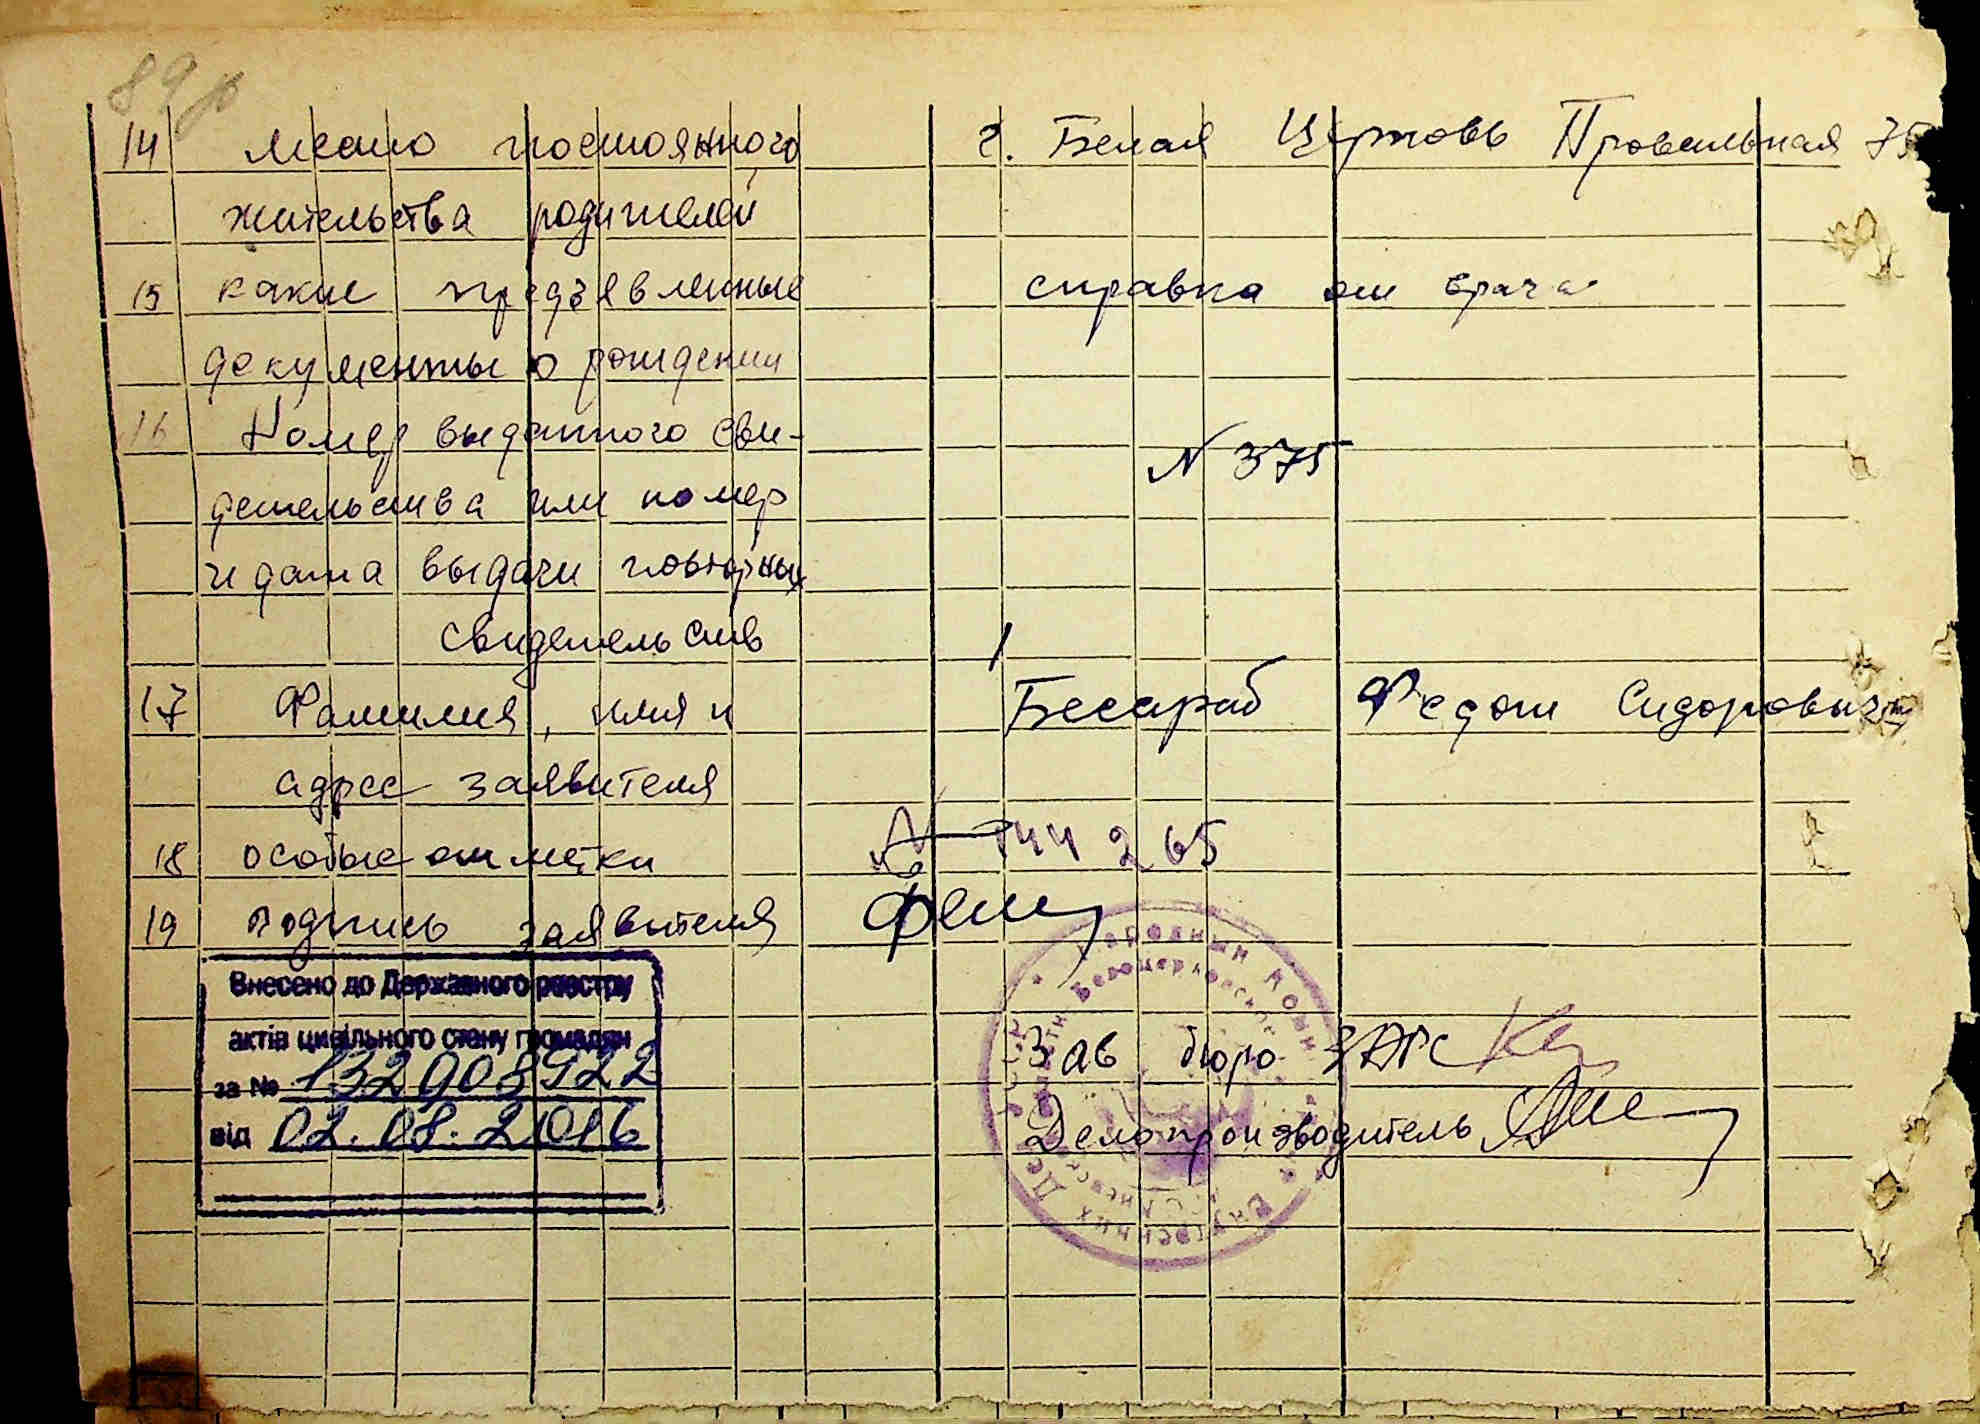 89
14 место постоянного г. Белая Церковь 75
жительства родителей
15 какие предъявленные справка от врача
документы о рождении
16 Номер выданного сви-
N 375
детельства или номер
и дата выдачи повторных
свидетельств
17 Фамилия, имя и Бесараб Федот Сидорович
адрес заявителя
18 особые отметки 144265
19 подпись заявителя
Внесено до Державного реєстру
актів цивільного стану громадян
за №
від 02.08.2016
Народный Ком
Белоцерковское
Зав бюро ЗАГС
Делопроизводитель
Внутренних Дел